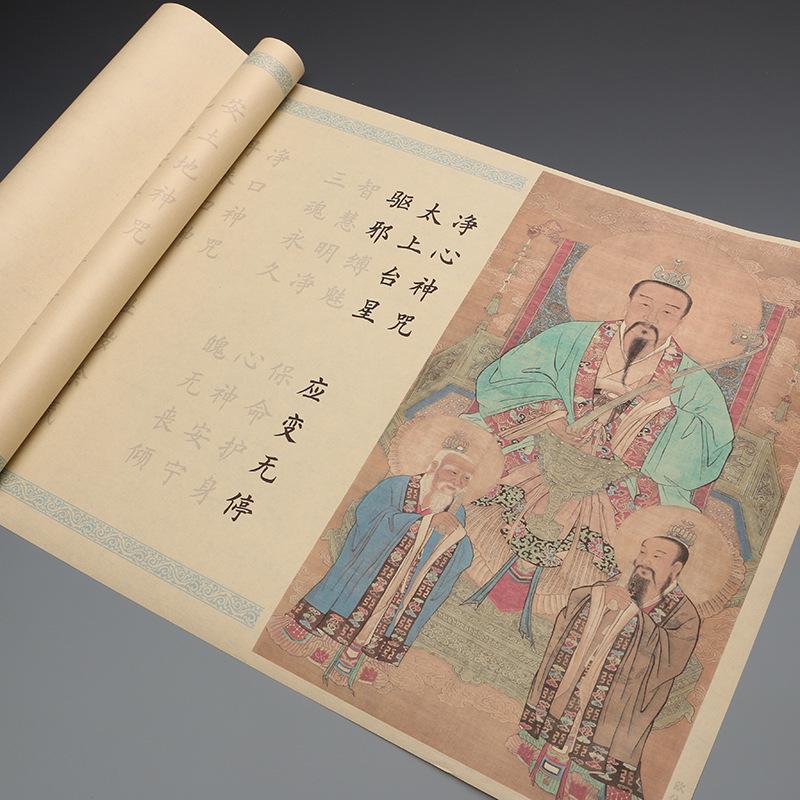 净心神咒
太上台星
应变无停
驱邪缚魅
保命护身
智慧明净
心神安宁
三魂永久
魄无丧倾
净口神咒
安土地神咒